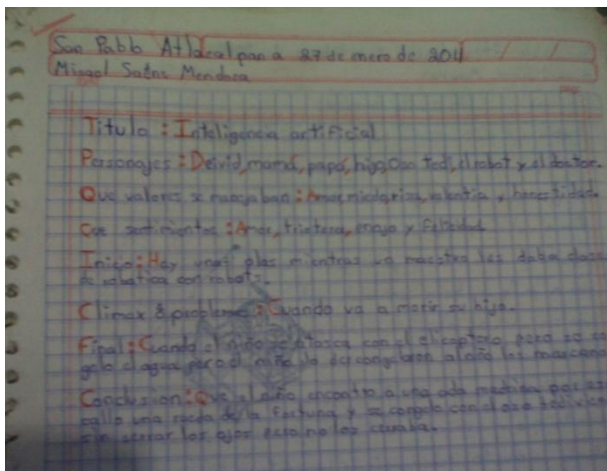 San Pablo Atlacalpan a 27 de enero de 2011
Miguel Mendoza
Titulo: Inteligencia artificial
Personajes: Deivid, mamá, papá, hijo, Oso Tedi, el robot y el doctor.
Que valores se manejaban: Amor, miedo, risa, valentia y honestidad.
Que sentimientos: Amor, tristeza, enojo y falsedad
Inicio: Hay unas olas mientras un maestro les daba clase
de robotica con robots.
Climax o problema: Cuando va a morir su hijo.
Final: Cuando el niño se atasca con el elicoptero pero se co
gelo el agua para el niño lo descongelaron al niño los
Conclusion: Que el niño encontro a una ada madrina por
callo una rueda de la fortuna y se congelo con el oso
sin serrar los ojos no los